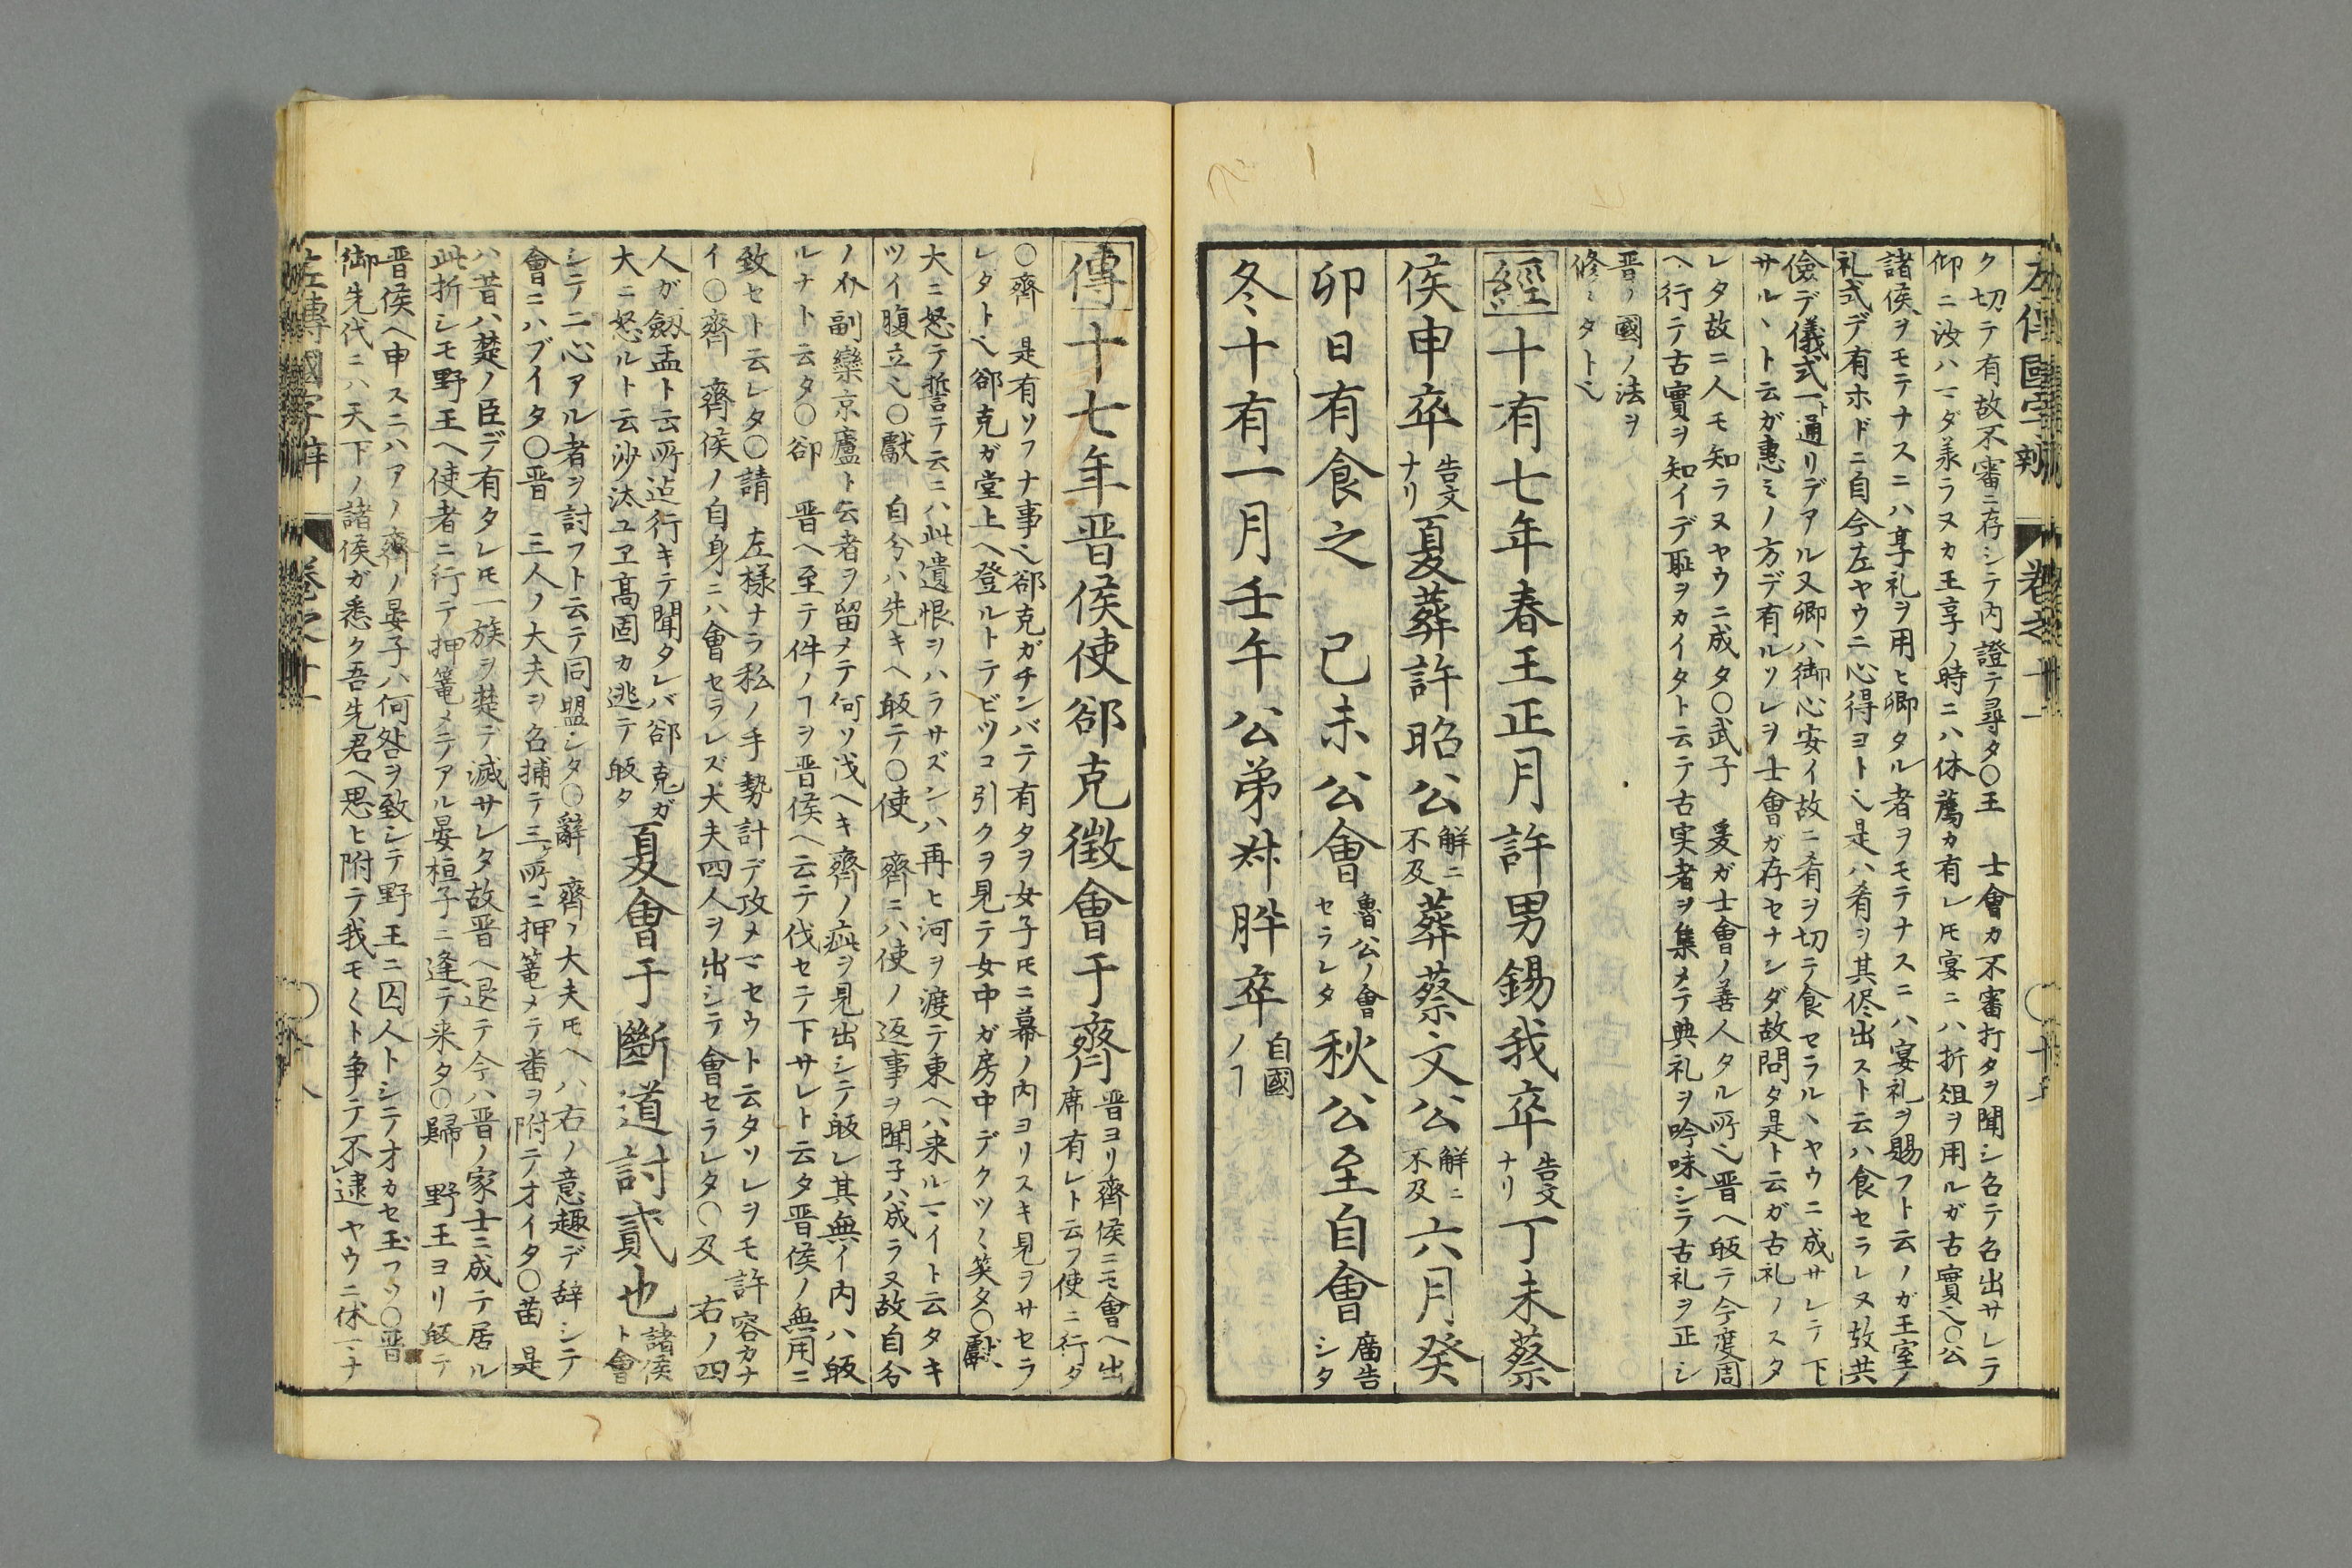 左傳國字辯 卷之十一
ク切テ有故不審ニ存シテ内證テ尋タ〇王 士會カ不審打タヲ聞シ召テ召出サレテ
仰ニ汝ハマダ美ラヌカ王享ノ時ニハ体薦カ有レ𪜈宴ニハ折俎ヲ用ルガ古實也〇公
諸侯ヲモテナスニハ享礼ヲ用ヒ卿タル者ヲモテナスニハ宴礼ヲ賜フト云ノガ王室ノ
礼式デ有ホドニ自今左ヤウニ心得ヨト也是ハ肴ヲ其侭出スト云ハ食セラレヌ故共
儉デ儀式一ト通リデアル又卿ハ御心安イ故ニ肴ヲ切テ食セラルヽヤウニ成サレテ下
サルヽト云ガ惠ミノ方デ有ルソレヲ士會ガ存セナンダ故問タ是ト云ガ古礼ノスタ
レタ故ニ人モ知ラヌヤウニ成タ〇武子 爰ガ士會ノ善人タル所也晋ヘ皈テ今度周
ヘ行テ古實ヲ知イデ恥ヲカイタト云テ古実者ヲ集メテ典礼ヲ吟味シテ古礼ヲ正シ
晋ノ國ノ法ヲ
修ミタト也
經十有七年春王正月許男錫我卒告文ナリ丁未蔡
侯申卒告文ナリ夏葬許昭公解ニ不及葬蔡文公解ニ不及六月癸
卯日有食之 己未公會魯公ノ會セラレタ秋公至自會廣告シタ
冬十有一月壬午公弟叔肸卒自國ノヿ
傳十七年晋侯使郤克徴會于齊晋ヨリ齊侯ニモ會ヘ出席有レト云フ使ニ行タ
〇齊 是有ソフナ事也郤克ガチンバテ有タヲ女子𪜈ニ幕ノ内ヨリスキ見ヲサセラ
レタト也郤克ガ堂上ヘ登ルトテビツコ引クヲ見テ女中ガ房中デクツ〱笑タ〇獻
大ニ怒テ誓テ云ニハ此遺恨ヲハラサズンハ再ヒ河ヲ渡テ東ヘハ来ルマイト云タキ
ツイ腹立也〇獻 自分ハ先キヘ皈テ〇使 齊ニハ使ノ返事ヲ聞子ハ成ラヌ故自分
ノ介副欒京廬ト云者ヲ留メテ何ソ伐ヘキ齊ノ疵ヲ見出シテ皈レ其無イ内ハ皈
ルナト云タ〇郤 晋ヘ至テ件ノヿヲ晋侯ヘ云テ伐セテ下サレト云タ晋侯ノ無用ニ
致セト云レタ〇請 左様ナラ私ノ手勢計デ攻メマセウト云タソレヲモ許容カナ
イ〇齊 齊侯ノ自身ニハ會セラレズ大夫四人ヲ出シテ會セラレタ〇及 右ノ四
人ガ斂盂ト云所迠行キテ聞タレバ郤克ガ
大ニ怒ルト云沙汰ユヱ高固カ逃テ皈タ夏會于斷道討貳也諸侯ト會
シテ二心アル者ヲ討フト云テ同盟シタ〇辭 齊ノ大夫𪜈ヘハ右ノ意趣デ辞シテ
會ニハブイタ〇晋 三人ノ大夫ヲ召捕テ三ツ所ニ押篭メテ番ヲ附テオイタ〇苗 是
ハ昔ハ楚ノ臣デ有タレ𪜈一族ヲ楚テ滅サレタ故晋ヘ退テ今ハ晋ノ家士ニ成テ居ル
此折シモ野王ヘ使者ニ行テ押篭メテアル晏桓子ニ逢テ来タ〇歸 野王ヨリ皈テ
晋侯ヘ申スニハアノ齊ノ晏子ハ何咎ヲ致シテ野王ニ囚人トシテオカセ玉フソ〇晋
御先代ニハ天下ノ諸侯ガ悉ク吾先君ヘ思ヒ附テ我モ〱ト争テ不レ逮ヤウニ休マナ
左傳國字辯 卷之十一